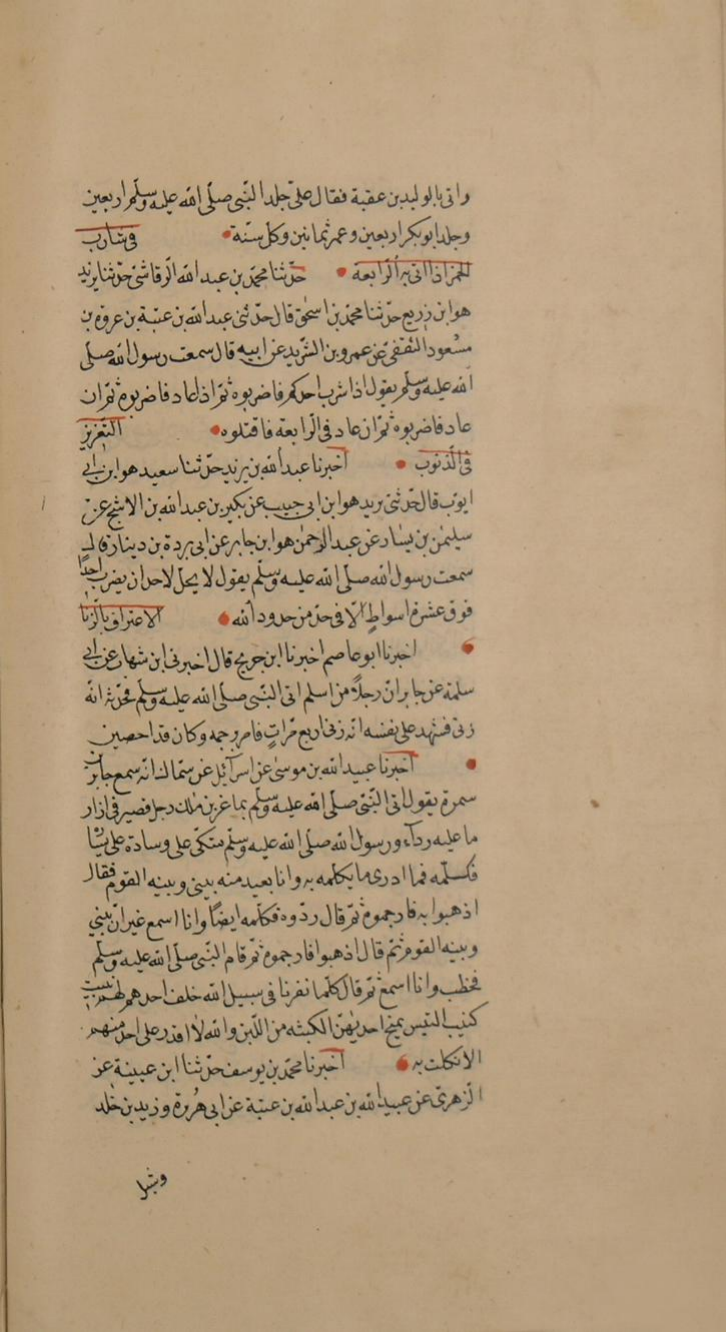 واتى بالوليد بن عقبة فقال علىّ جلد النّبى صلّى الله عليه وسلّم اربعين
وجلد ابو بكر اربعين وعمر ثمانين وكل سنّة فى شارب
الخمر اذا اتى به الرّابعة حدّثنا محمّد بن عبد الله الرّقاشى حدّثنا يزيد
هو ابن زريع حدّثنا محمّد بن اسحٰق قال حدّثنى عبد الله بن عتبة بن عروة بن
مسعود الثقفى عن عمرو بن الشّريد عن ابيه قال سمعت رسول الله صلى
الله عليه وسلّم يقول اذا شرب احدكم فاضربوه ثمّ اذا عاد فاضربوه ثمّ ان
عاد فاضربوه ثمّ ان عاد فى الرّابعة فاقتلوه التّعزيز
فى الذّنوب اخبرنا عبد الله بن يزيد حدّثنا سعيد هو ابن ابى
ايوب قال حدّثنى يزيد هو ابن ابى حبيب عن بكير بن عبد الله بن الاشج عن
سليمٰن بن يسار عن عبد الرحمٰن هو ابن جابر عن ابى بردة بن دينار قال
سمعت رسول الله صلى الله عليه وسلّم يقول لا يحلّ لاحد ان يضرب احدًا
فوق عشرة اسواطٍ الّا فى حدّ من حدود الله الاعتراف بالزّنا
اخبرنا ابو عاصم اخبرنا ابن جريج قال اخبرنى ابن شهاب عن ابى
سلمة عن جابر انّ رجلًا من اسلم اتى النّبى صلى الله عليه وسلّم فحدّثه انّه
زنى فشهد على نفسه انّه زنى اربع مرّاتٍ فامر برجمه وكان قد احصن
اخبرنا عبيد الله بن موسىٰ عن اسرآئيل عن سماك انّه سمع جابر بن
سمرة يقول اتى النّبى صلى الله عليه وسلّم بماعز بن مٰلك رجل قصير فى ازار
ما عليه ردآء ورسول الله صلى الله عليه وسلّم متكئ على وسادة على يساره
فكلّمه فما ادرى ما يكلمه به وانا بعيد منه بينى وبينه القوم فقال
اذهبوا به فارجموه ثمّ قال ردّوه فكلّمه ايضًا وانا اسمع غير انّ بينى
وبينه القوم ثمّ قال اذهبوا فارجموه ثمّ قام النّبى صلّى الله عليه وسلّم
فخطب وانا اسمع ثمّ قال كلّما نفرنا فى سبيل الله خلف احدهم له نبيب
كنبيب التيس يمنح احديهنّ الكثبة من اللّبن والله لا اقدر على احد منهم
الّا نكلت به اخبرنا محمّد بن يوسف حدّثنا ابن عيينة عن
الزهرىّ عن عبيد الله بن عبد الله بن عتبة عن ابى هريرة وزيد بن خٰلد
وشبل